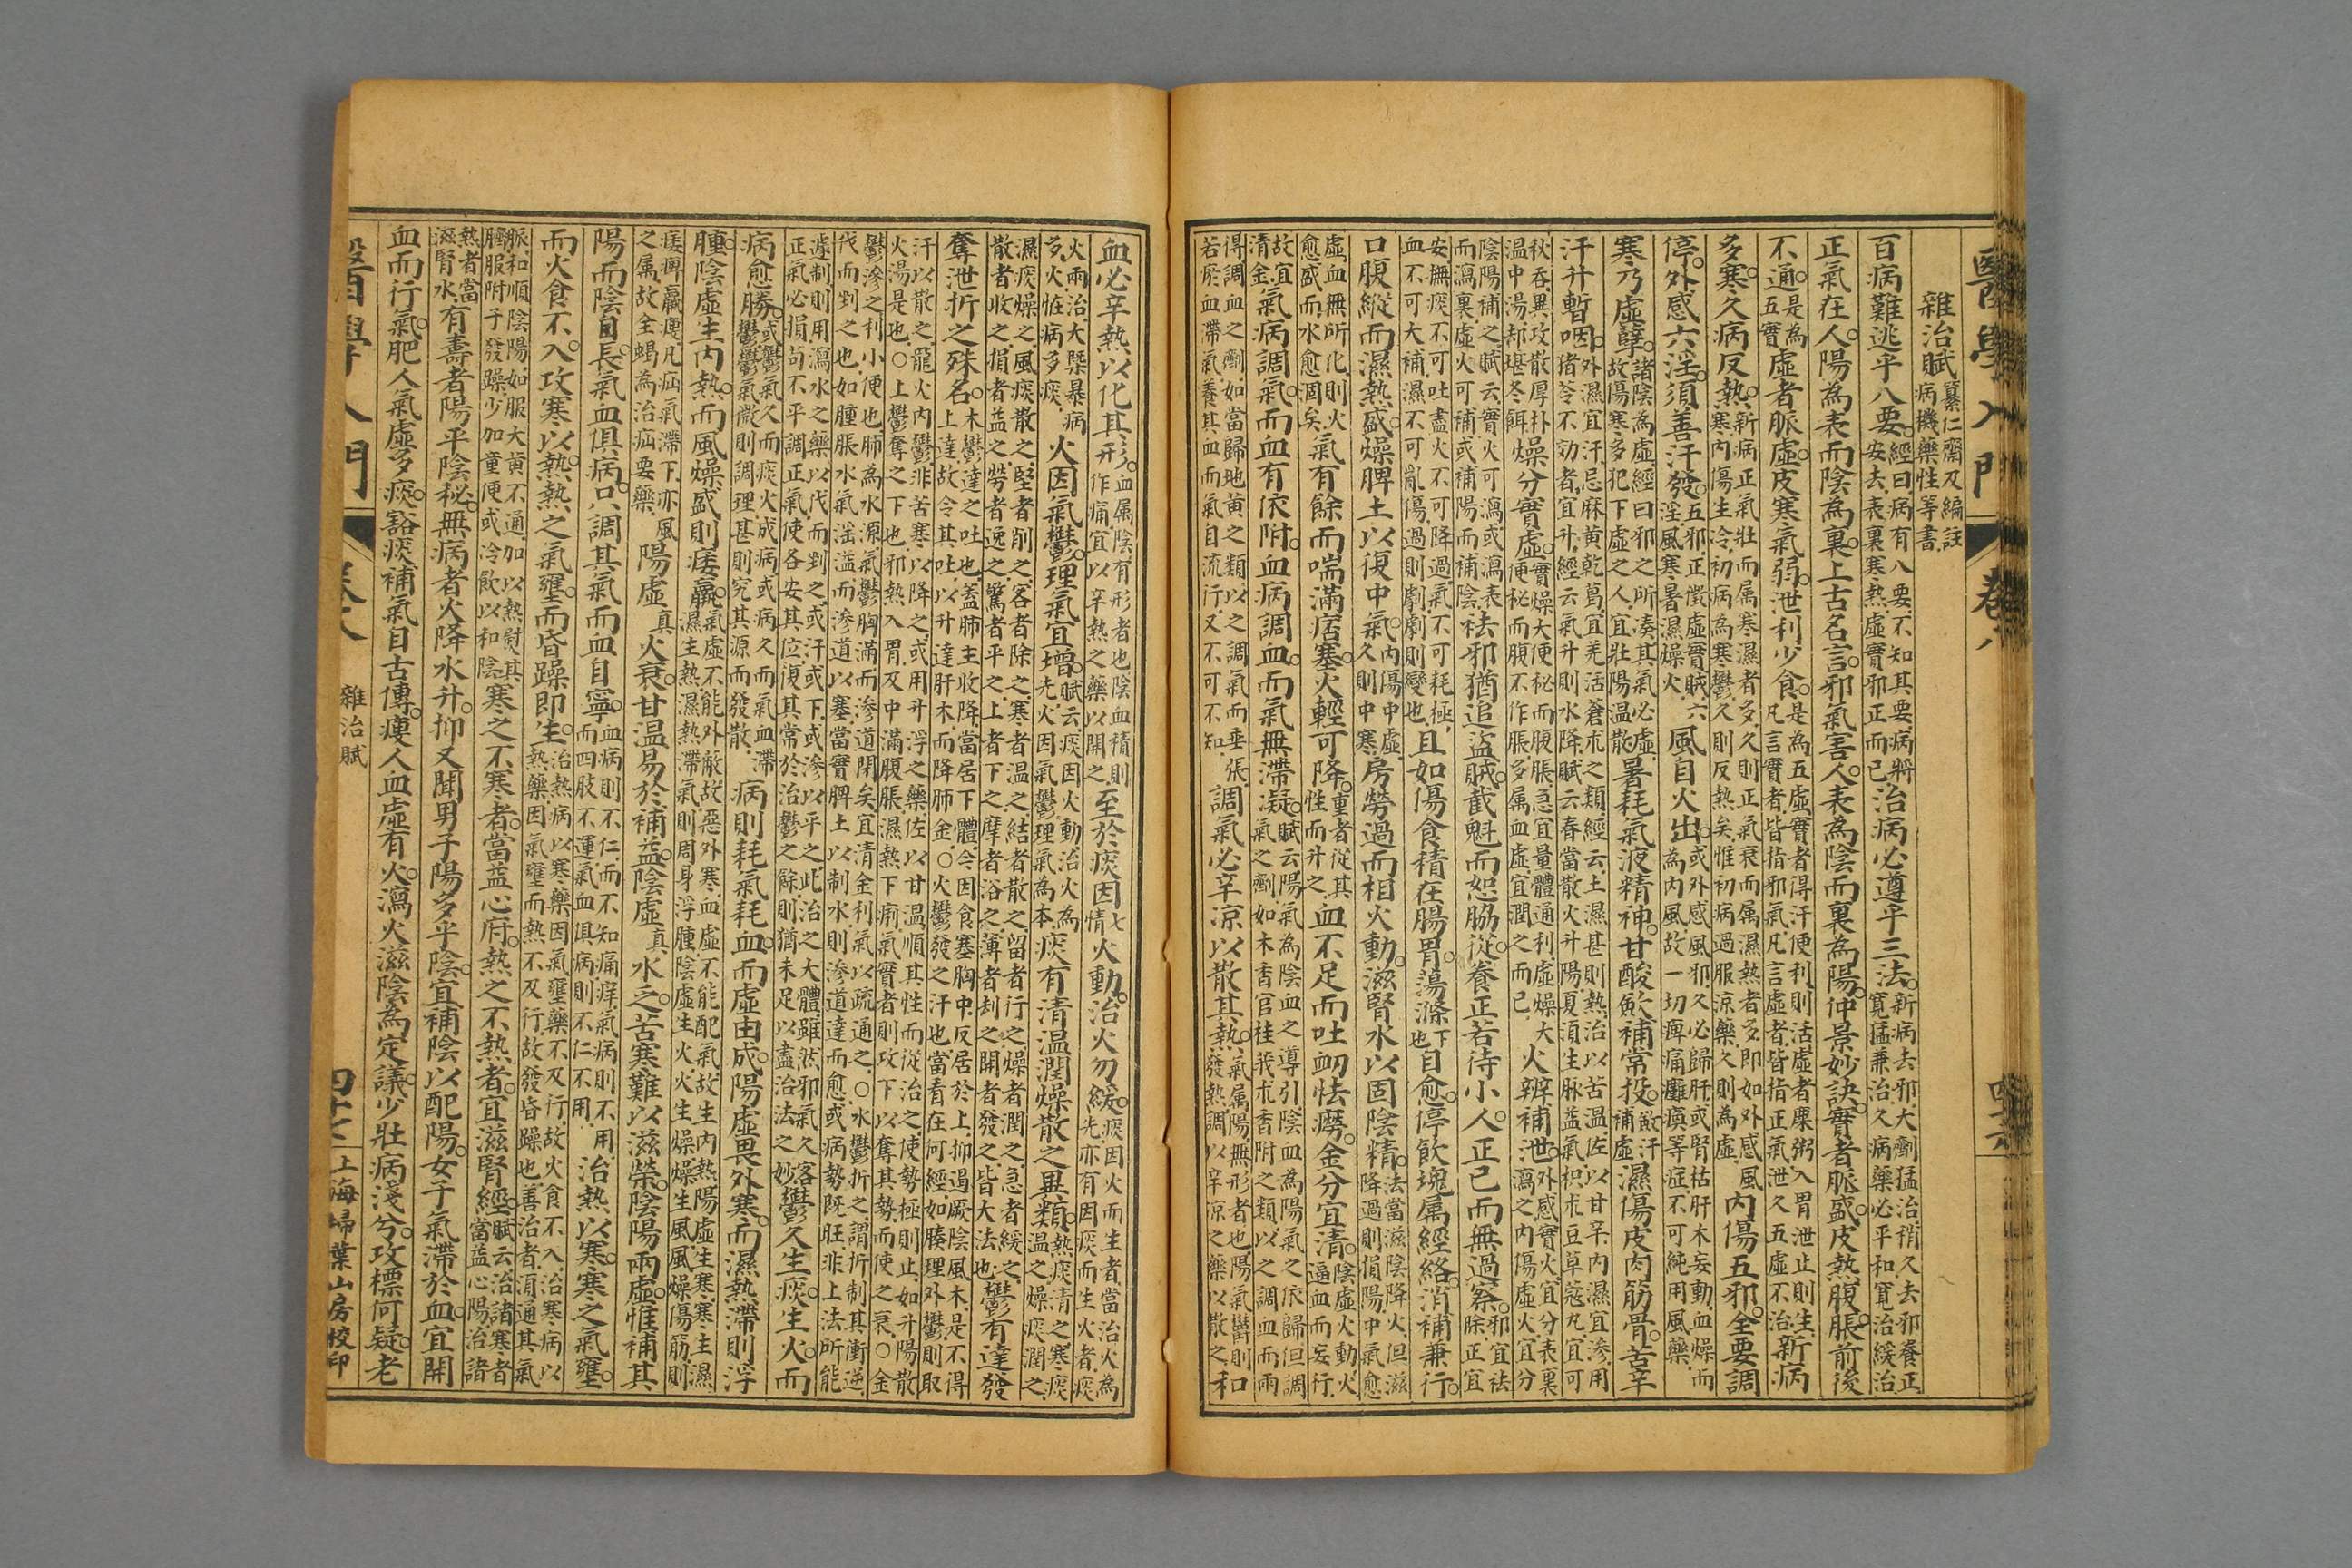 醫學入門 卷八 四十六
雜治賦 纂仁齋及編註病機藥性等書
百病難逃乎八要。經曰病有八要不知其要病將安去表裏寒熱虛實邪正而已治病必遵乎三法。新病去邪大劑猛治稍久去邪養正寬猛兼治久病藥必平和寬治緩治
正氣在人。陽為表而陰為裏。上古名言。邪氣害人。表為陰而裏為陽。仲景妙訣。實者脈盛。皮熱腹脹。前後
不通。是為五實虛者脈虛。皮寒氣弱。泄利少食。是為五虛實者得汗便利則活虛者糜粥入胃泄止則生凡言實者皆指邪氣凡言虛者皆指正氣泄久五虛不治新病
多寒。久病反熱。新病正氣壯而属寒濕者多久則正氣衰而属濕熱者多即如外感風寒內傷生冷初病為寒鬱久則反熱矣惟初病過服涼藥久則為虛內傷五邪。全要調
停。外感六淫。須善汗發。五邪正微虛實賊六淫風寒暑濕燥火風自火出。或外感風邪久必歸肝或腎枯肝木妄動血燥而為內風故一切痺痛癱瘓等症不可純用風藥
寒乃虛孽。諸陰為虛經曰邪之所凑其氣必虛故傷寒多犯下虛之人宜壯陽溫散暑耗氣液精神。甘酸斂補常投。斂汗補虛濕傷皮肉筋骨。苦辛
汗升暫咽。外濕宜汗忌麻黄乾葛宜羌活蒼朮之類經云土濕甚則熱治以苦溫佐以甘辛內濕宜滲用猪苓不効者宜升經云氣升則水降賦云春當散火升陽夏須生脉益氣枳朮豆草蔻丸宜可
秋吞異攻散厚朴溫中湯却堪冬餌燥分實虛。實燥大便秘而腹脹急宜量體通利虛燥大便秘而腹不作脹多属血虛宜潤之而已火辨補泄。外感實火宜分表裏瀉之內傷虛火宜分
陰陽補之賦云實火可瀉或瀉表而瀉裏虛火可補或補陽而補陰袪邪猶追盜賊。截魁而恕脇從。養正若待小人。正己而無過察。邪宜袪除正宜
安撫痰不可吐盡火不可降過氣不可耗極血不可大補濕不可亂傷過則劇劇則變也且如傷食積在腸胃。蕩滌下也自愈。停飲塊属經絡。消補兼行。
口腹縱而濕熱盛。燥脾土以復中氣。內傷中虛久則中寒房勞過而相火動。滋腎水以固陰精。法當滋陰降火但滋降過則損陽中氣愈
虛血無所化則火愈盛而水愈涸矣氣有餘而喘滿痞塞。火輕可降。重者從其性而升之血不足而吐衂怯癆。金分宜清。陰虛火動火逼血而妄行
故宜清金氣病調氣。而血有依附。血病調血。而氣無滯凝。賦云陽氣為陰血之導引陰血為陽氣之依歸但調氣之劑如木香官桂莪朮香附之類以之調血而兩
得調血之劑如當歸地黄之類以之調氣而乖張若瘀血滯氣養其血而氣自流行又不可不知調氣必辛凉以散其熱。氣属陽無形者也陽氣鬱則發熱調以辛涼之藥以散之和
血必辛熱以化其形。血属陰有形者也陰血積則作痛宜以辛熱之藥以開之至於痰因七情火動。治火勿緩。痰因火而生者當治火為先亦有因痰而生火者痰
火兩治大槩暴病多火怪病多痰火因氣鬱。理氣宜增。賦云痰因火動治火為先火因氣鬱理氣為本痰有清温潤燥散之異類。熱痰清之寒痰温之燥痰潤之
濕痰燥之風痰散之堅者削之客者除之寒者温之結者散之留者行之燥者潤之急者緩之散者收之損者益之勞者逸之驚者平之上者下之摩者浴之薄者刼之開者發之皆大法也鬱有達發
奪泄折之殊名。木鬱達之達之吐也蓋肺主收降當居下體今因食塞胸中反居於上抑遏厥陰風木是不得上達故令其吐以升達肝木而降肺金○火鬱發之汗也當看在何經如腠理外鬱則取
汗以散之龍火內鬱非苦寒以降之或用升浮之藥佐以甘温順其性而從治之使勢極則止如升陽散火湯是也○土鬱奪之下也邪熱入胃及中滿腹脹濕熱下痢氣實者則攻下以奪其勢而使之衰○金
鬱滲之利小便也肺為水源氣鬱胸滿而滲道閉矣宜清金利氣以疏通之○水鬱折之謂折制其衝逆伐而剉之也如腫脹水氣淫溢而滲道以塞當實脾土以制水則滲道達而愈或病勢既旺非上法所能
遽制則用瀉水之藥以伐而剉之或汗或下或滲以平之此治之大體雖然邪氣久客正氣必損苟不平調正氣使各安其位復其常於治鬱之餘則猶未足以盡治法之妙鬱久生痰。生火。而
病愈勝。或鬱氣久而痰火成病或病久而氣血滯鬱鬱氣微則調理甚則究其源而發散病則耗氣耗血。而虛由成。陽虛畏外寒。而濕熱滯則浮
腫。陰虛生內熱。而風燥盛則痿羸。氣虛不能外敵故惡外寒血虛不能配氣故生內熱陽虛生寒寒生濕濕生熱濕熱滯氣則周身浮腫陰虛生火火生燥燥生風風燥傷筋則
痿痺羸瘦凡疝氣滯下亦風之属故全蝎為治疝要藥陽虛真火衰。甘温易於補益。陰虛真水乏。苦寒難以滋榮。陰陽兩虛。惟補其
陽而陰自長。氣血俱病。只調其氣而血自寧。血病則不仁而不知痛痒氣病則不用而四肢不運氣血俱病則不仁不用治熱以寒。寒之氣壅。
而火食不入。攻寒以熱。熱之氣壅。而昏躁即生。治熱病以寒藥因氣壅藥不及行故火食不入治寒病以熱藥因氣壅而熱不及行故發昏躁也善治者須通其氣
脈和順陰陽如服大黄不通加以熱熨其臍服附子發躁少加童便或冷飲以和陰寒之不寒者。當益心府。熱之不熱者。宜滋腎經。賦云治諸寒者當益心陽治諸
熱者當滋腎水有壽者陽平陰秘。無病者火降水升。抑又聞男子陽多乎陰。宜補陰以配陽。女子氣滯於血。宜開
血而行氣。肥人氣虛多痰。豁痰補氣自古傳。瘦人血虛有火。瀉火滋陰為定議。少壯病淺兮。攻標何疑。老
雜治賦 上海埽葉山房校印